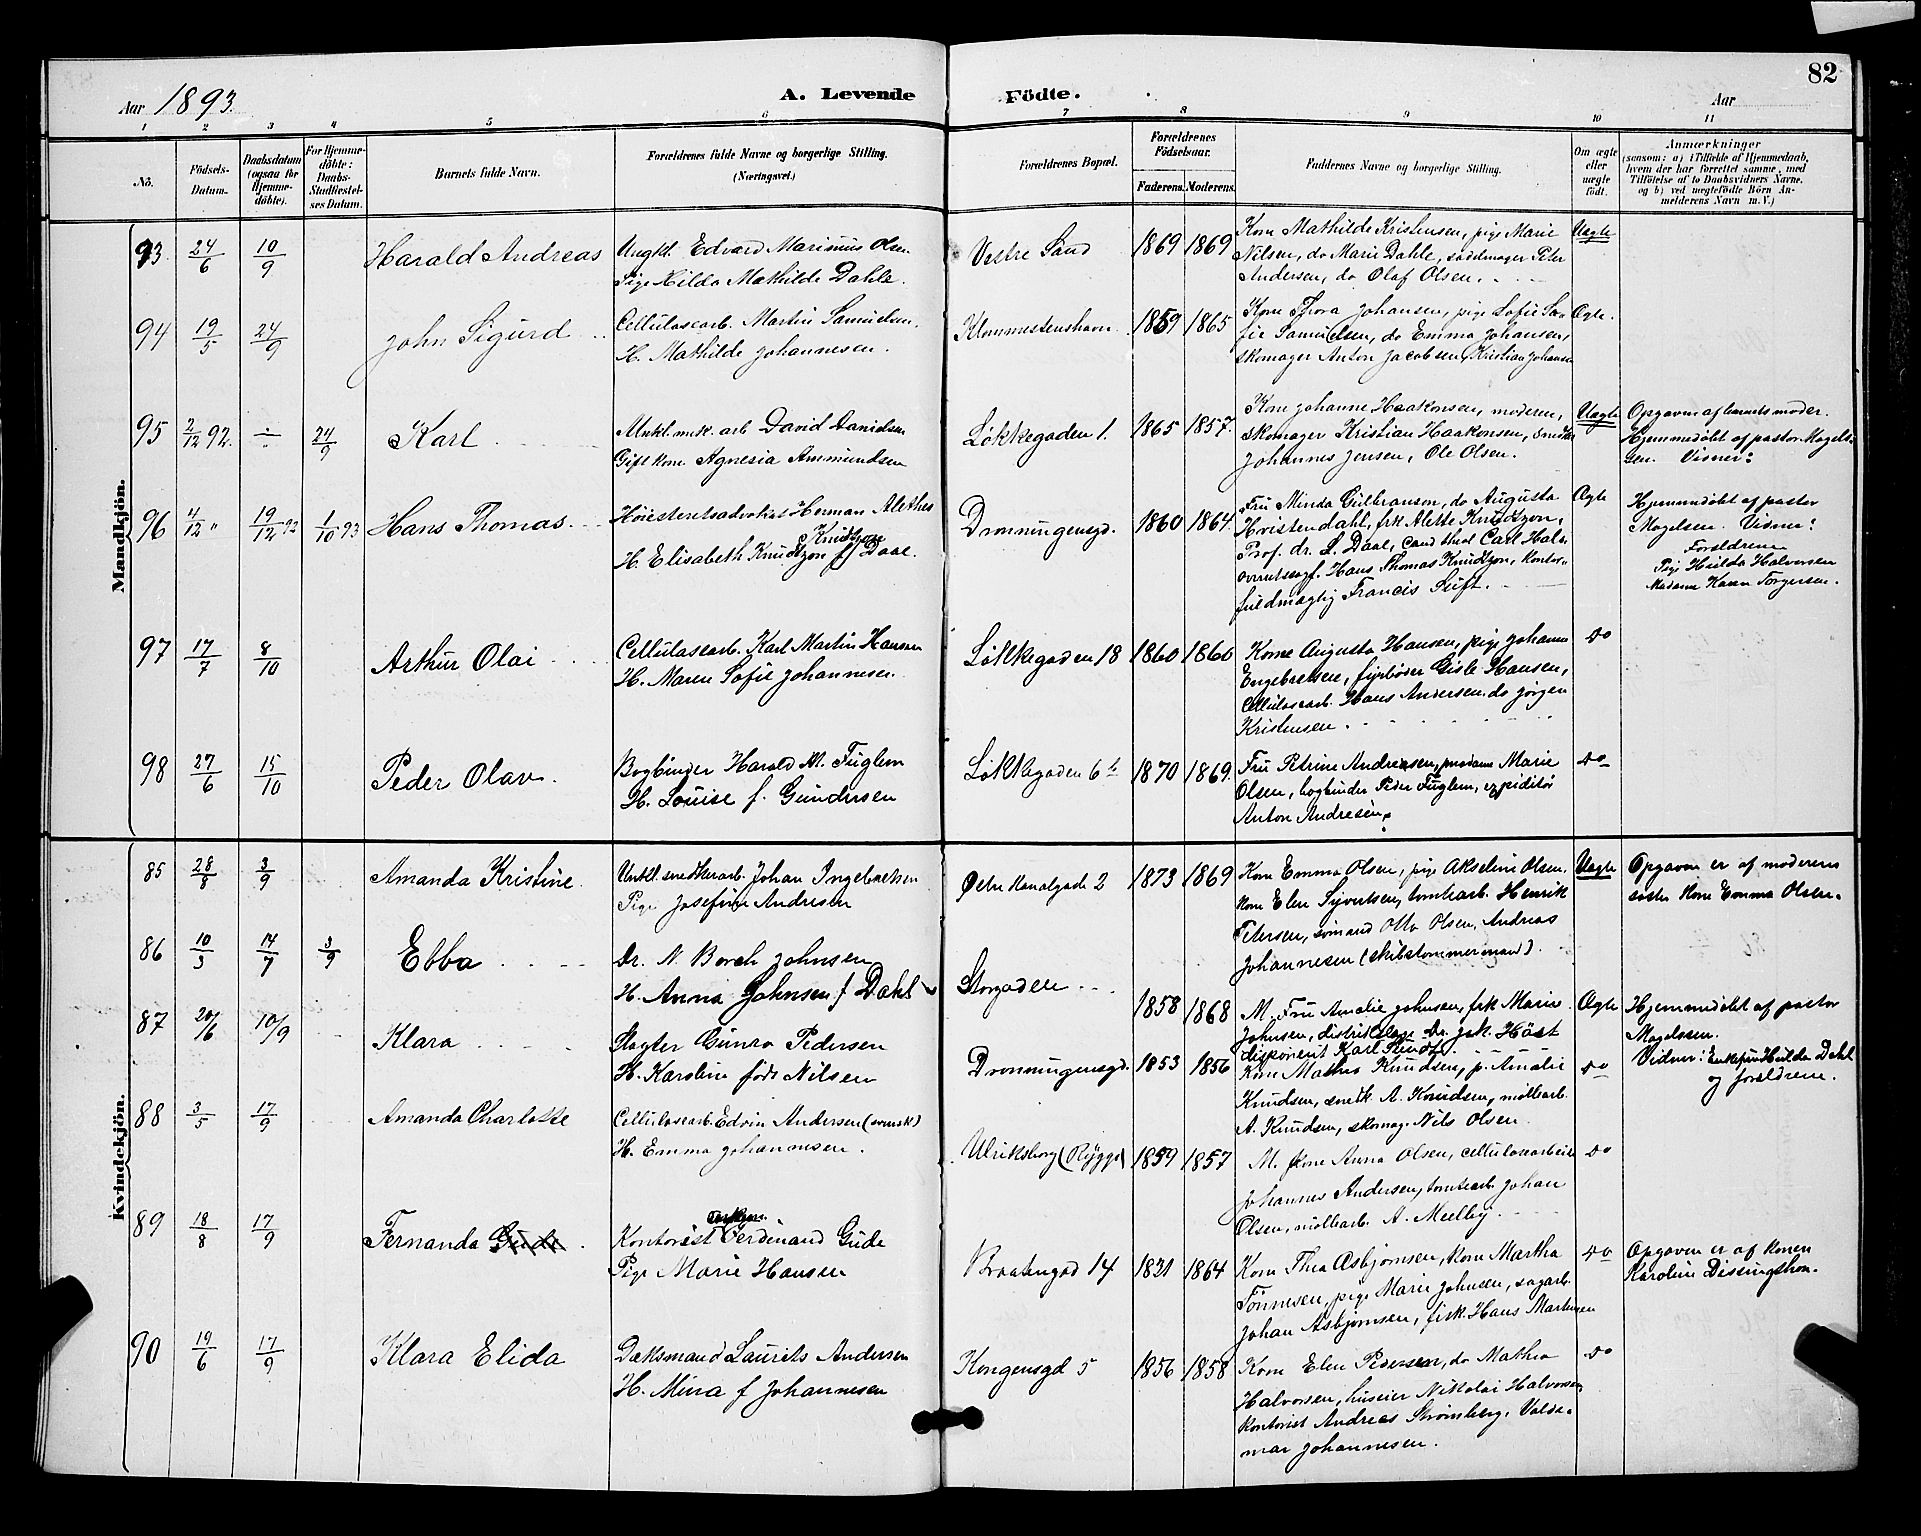 82
Aar 1893.
A. Levende Födte.
Aar
1 2 3 4 5 6 7 8 9 10 11
No.
Födsels-Datum.
Daabsdatum (ogsaa for Hjemme-döbte).
For Hjemme-döbte: Daabs-Stadfæstel-ses Datum.
Barnets fulde Navn.
Forældrenes fulde Navne og borgerlige Stilling. (Næringsvei.)
Forældrenes Bopæl.
Forældrenes Födselsaar.
Faderens. Moderens.
Faddernes Navne og borgerlige Stilling.
Om ægte eller uægte födt.
Anmærkninger
(saasom: a) i Tilfælde af Hjemmedaab,
hvem der har forrettet samme, med
Tilföielse af to Daabsvidners Navne,
og b) ved uægtefödte Börn An-
melderens Navn m. V.)
Mandkjön.
93. 24/6 10/9 Harald Andreas
Ungkl. Edvard Marinius Olsen
Pige Hilda Mathilde Dahle.
Vestre Sand 1869 1869
Kone Mathilde Kristensen, pige Marie
Nilsen, do Marie Dahle, saddmager Peter
Andersen, do Olaf Olsen.
Uægte
94 19/5 24/9 John Sigurd
Cellulosearb. Martin Samuelsen.
H. Mathilde Johannesen.
1859 1865
Kone Thora Johansen, pige Sofie So-
fie Samuelsen, do Emma Johansen,
skomager Anton Jacobsen, Kristian Johansen
Ægte.
95 2/12 92. ÷ 24/9 Karl
Unkl. mek. arb David Danielsen
Gift kone Agnesia Ammundsen
Løkkegaden 1. 1865 1857.
Kone Johanne Haakonsen, moderen,
skomager Kristian Haakonsen, smed
Johannes Jensen, Ole Olsen.
Uægte
Opgaven af barnets moder.
Hjemmedøbt af pastor Magels-
sen. Visner:
96 4/12 " 19/12 92 1/10 93 Hans Thomas
Høiesteretsadvokat Herman Alethes
Knudtzon
H. Elisabeth Knudtzon f Daae.
Dronningensgd. 1860 1864.
Fru Minda Gulbranson, do Augusta
Hvistendahl, frk Alette Knudtzon,
Prof. dr. L. Daae, cand theol Carl Hals
overretssagf. Hans Thomas Knudtzon, kontor-
fuldmægtig Francis Süft.
Ægte
Hjemmedøbt af pastor
Magelsen. Visner:
Forældrene
Pige Hulda Halvorsen
Madame Karen Torgersen.
97 17/7 8/10 Arthur Olai
Cellulosearb. Karl Martin Hansen
H. Maren Sofie Johannesen.
Løkkegaden 18 1860 1860
Kone Augusta Hansen, pige Johanne
Engebretsen, fyrbøder Gisle Hansen,
Cellulosearb. Hans Andersen, do Jørgen
Kristensen.
do
98 27/6 15/10 Peder Olav.
Bogbinder Harald M. Fuglem
H. Louise f. Gundersen
Løkkegaden 6b 1870 1869.
Fru Petrine Andresen, madame Marie
Olsen, bogbinder Peder Fuglem, expiditør
Anton Andresen.
do
Kvindekjön.
85 28/8 3/9 Amanda Kristine
Unkl. snedkerarb. Johan Ingebretsen
Pige Josefine Andresen
Østre Kanalgade 2 1873 1869
Kone Emma Olsen, pige Akseline Olsen,
kone Elen Syvertsen, tomtearb. Henrik
Petersen, sømand Otto Olsen, Andreas
Johannesen (skibstømmermand).
Uægte
Opgaven er af moderens
søster kone Emma Olsen.
86 10/3 14/7 3/9 Ebba
Dr. N. Borch Johnsen
H. Anna Johnsen f Dahl
Storgaden 1858 1868
M. Fru Amalie Johnsen, frk Marie
Johnsen, distriktslæge Dr. Joh. Høst
disponent Karl
Ægte
Hjemmedøbt af pastor
Magelssen.
Vidner: Enkefru Hulda Dahl
og forældrene.
87 20/6 10/9 Klara
Slagter Gunro Pedersen
H. Karoline født Nilsen
Dronningensgd. 1853 1856
Kone Mathea Knudsen, p. Amalie
Knudsen, snedk. A. Knudsen, møllearb.
A. Knudsen, skomag. Nils Olsen.
do
88 3/5 17/9 Amanda Charlotte
Cellulosearb. Edvin Andersen (svensk)
H. Emma Johannesen.
Ulriksborg (Rygge) 1859 1857
M. kone Anna Olsen, cellulosearbeid
Johannes Andersen, tomtearb. Johan
Olsen, møllearb. A. Meelby.
do
89 18/8 17/9 Fernanda Gude
Kontorist Ferdinand Gude
Pige Marie Hansen
Braatengad 14 1821 1864
Kone Thea Asbjørnsen, kone Martha
Tønnesen, pige Marie Johnsen, sagarb.
Johan Asbjørnsen, fisk. Hans Martinsen
do
Opgaven er af konen
Karoline Dissingthon.
90 19/6 17/9 Klara Elida
Dæksmand Laurits Andersen
H. Mina f Johannesen
Kongensgd 5 1856 1858
Kone Elen Pedersen, do Mathea
Halvorsen, huseier Nikolai Halvorsen
kontorist Andreas Strømberg, Valde-
mar Johannesen.
do